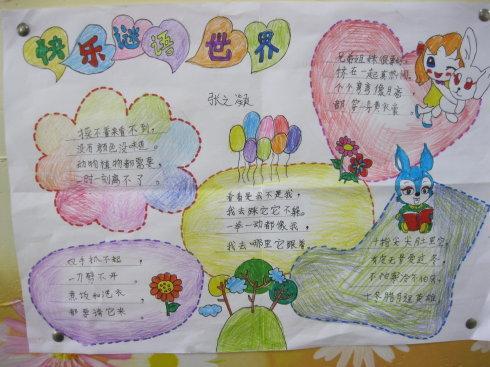 快乐谜语世界
张之凝
摸不着来看不到,
没有颜色没味道。
动物植物都需要,
一时一刻离不了。
兄弟姐妹很多,
挤在一起真热闹,
个个弯弯像月亮,
都穿一身黄衣裳。
看看是我不是我,
我去
一举一动都像我,
我去哪里它跟着
双手抓不起,
一刀劈不开。
煮饭和洗衣,
都要请它来。
十指尖尖肚里空,
有皮无骨爱过冬
不怕寒冷不怕风,
十冬腊月逞英雄